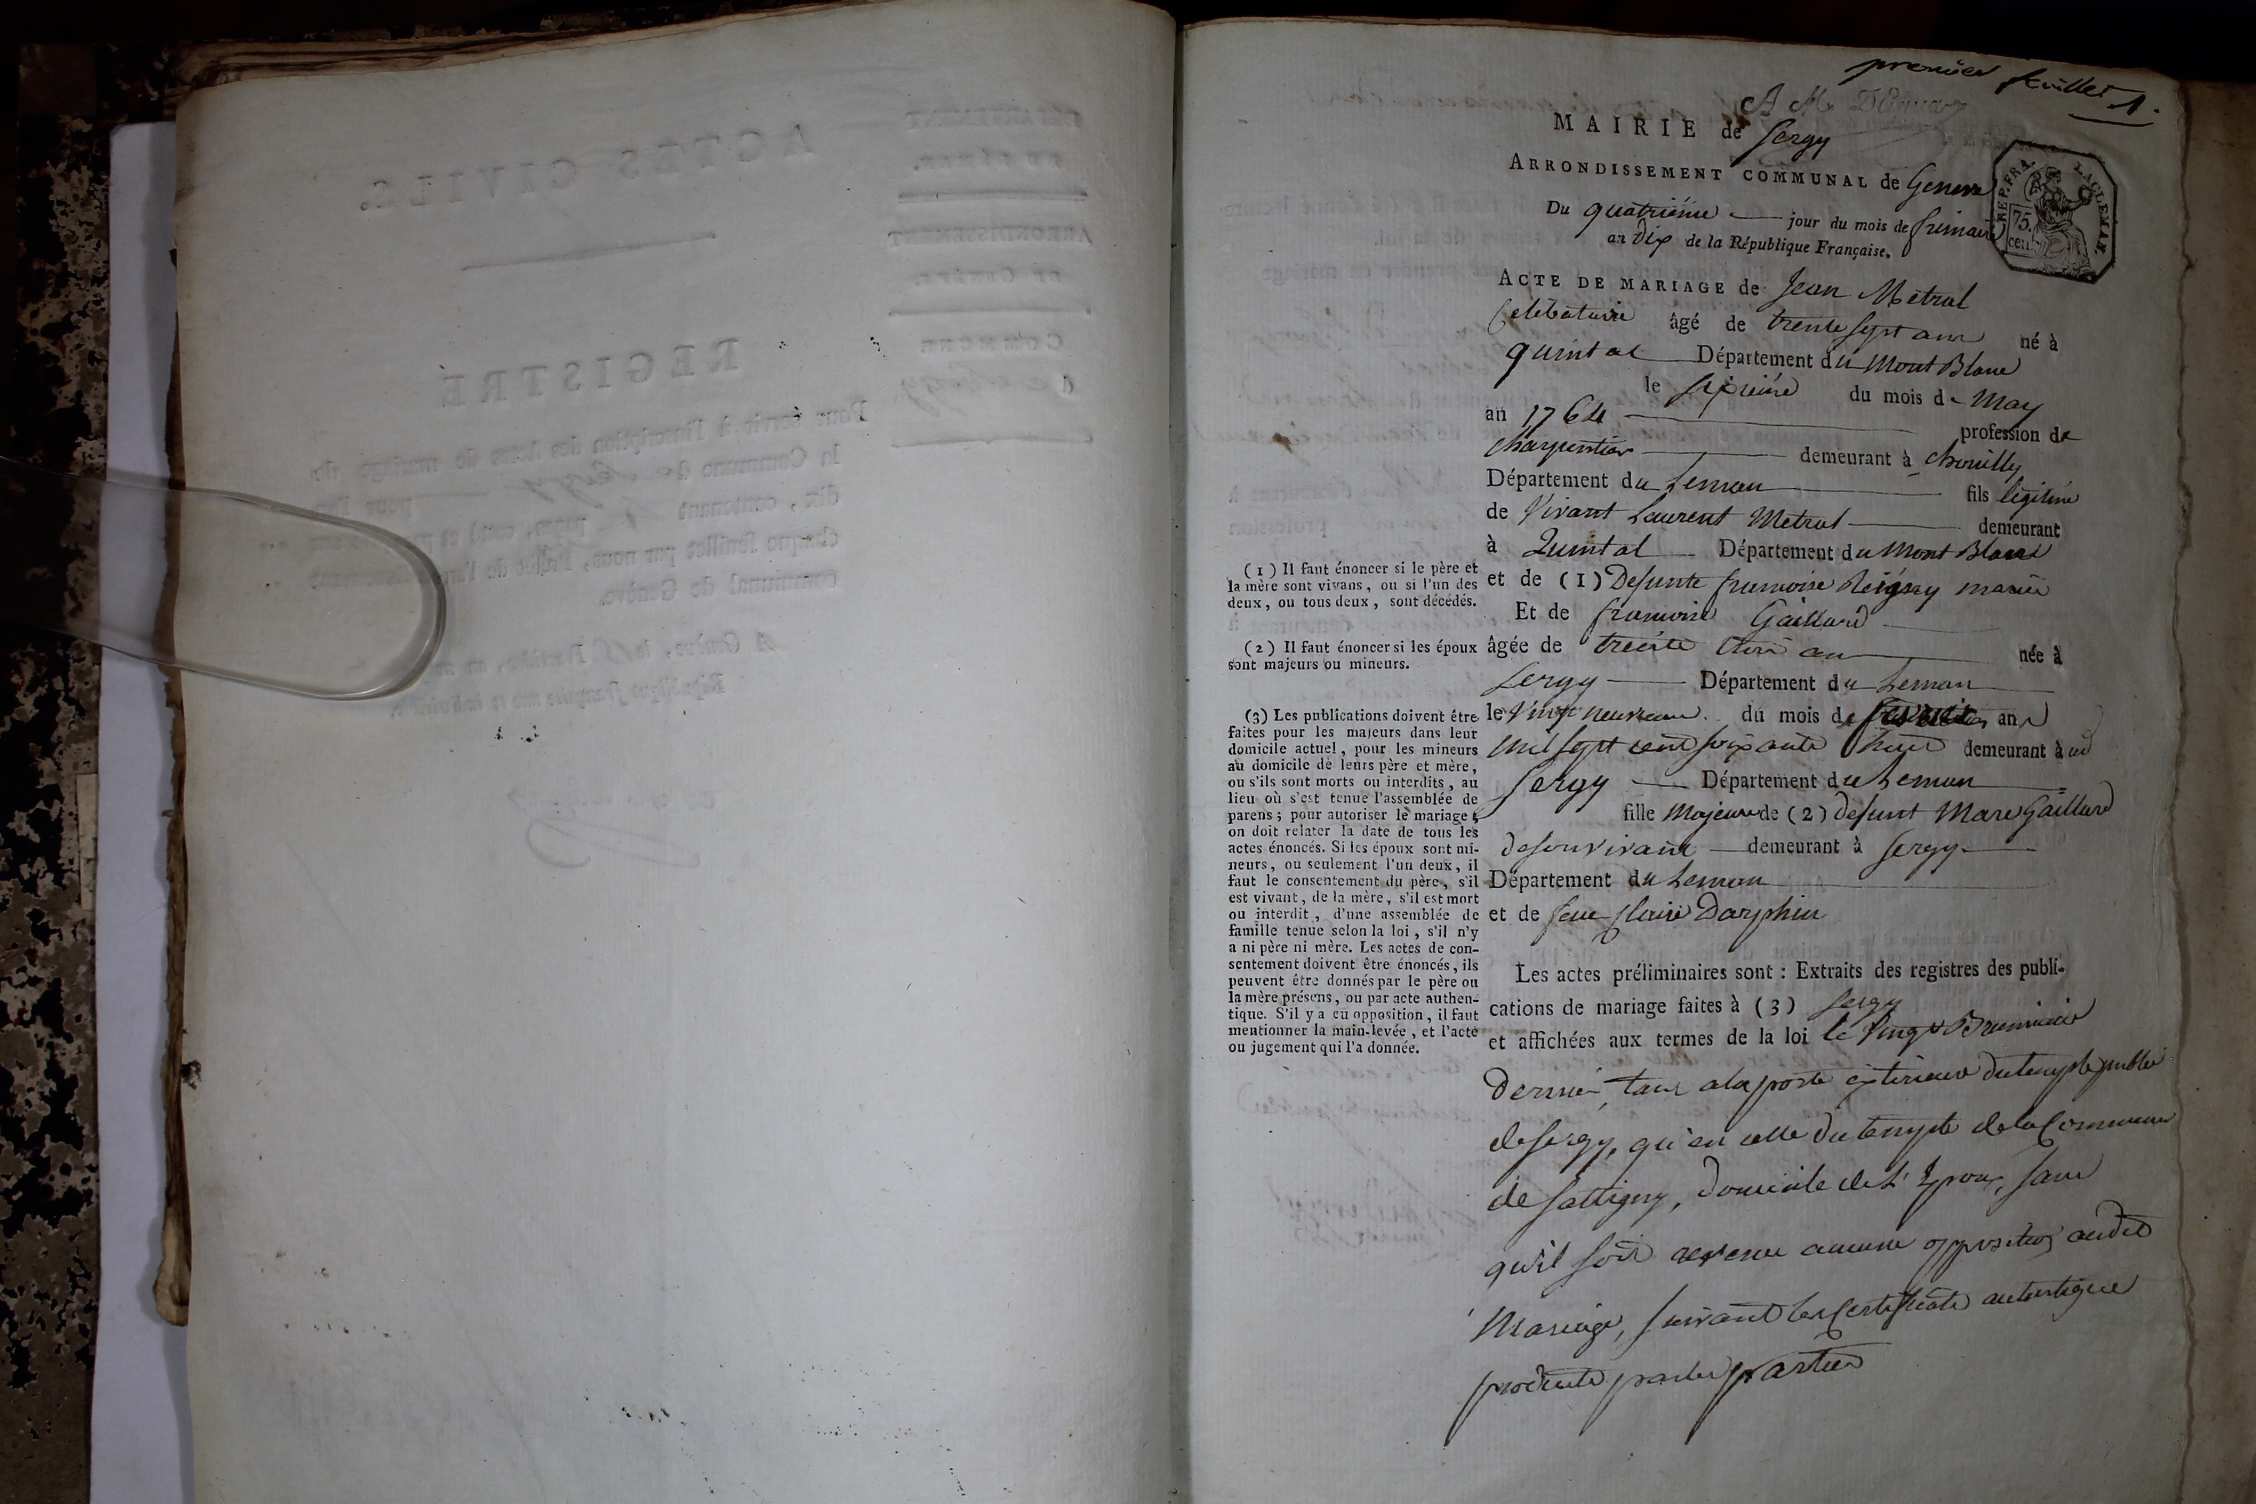 premier feuillet 1.
MAIRIE de Sergy
ARRONDISSEMENT COMMUNAL de Geneve
REP. FRA. 75. cent.
Du quatrième jour du mois de frimaire
an dix de la République Française.
ACTE DE MARIAGE de Jean Metral
Celibataire âgé de trente sept ans né à
quintal Département du Mont Blanc
le du mois de May
an 1764 profession de
charpentier demeurant à chouilly
Département du Leman fils légitime
de Vivant Laurent Metral demeurant
à Quintal Département du Mont Blanc
et de (1) Defunte francoise mariée
Et de francoise Gaillard
âgée de trente trois an née à
Sergy Département du Leman
le Vingt neuvieme du mois de an
mil sept cent soixante huit demeurant à
Sergy Département du Leman
fille Majeure de (2) defunt Marc Gaillard
de son vivant demeurant à Sergy
Département du Leman
et de feue Claire Darphin
Les actes préliminaires sont : Extraits des registres des publi-
cations de mariage faites à (3) Sergy
et affichées aux termes de la loi le Vingt Brumaire
dernier, tant a la porte exterieure du temple public
de Sergy, qu'en celle du temple de la Commune
de Sattigny, domicile de L'Epoux, sans
qu'il soit aucune opposition audit
Mariage, suivant les Certificats autentique
produits par les parties
(1) Il faut énoncer si le père et
la mère sont vivans, ou si l'un des
deux, ou tous deux, sont décédés.
(2) Il faut énoncer si les époux
sont majeurs ou mineurs.
(3) Les publications doivent être
faites pour les majeurs dans leur
domicile actuel, pour les mineurs
au domicile de leurs père et mère,
ou s'ils sont morts ou interdits, au
lieu où s'est tenue l'assemblée de
parens ; pour autoriser le mariage,
on doit relater la date de tous les
actes énoncés. Si les époux sont mi-
neurs, ou seulement l'un deux, il
faut le consentement du père, s'il
est vivant, de la mère, s'il est mort
ou interdit, d'une assemblée de
famille tenue selon la loi, s'il n'y
a ni père ni mère. Les actes de con-
sentement doivent être énoncés, ils
peuvent être donnés par le père ou
la mère présens, ou par acte authen-
tique. S'il y a eu opposition, il faut
mentionner la main-levée, et l'acte
ou jugement qui l'a donnée.